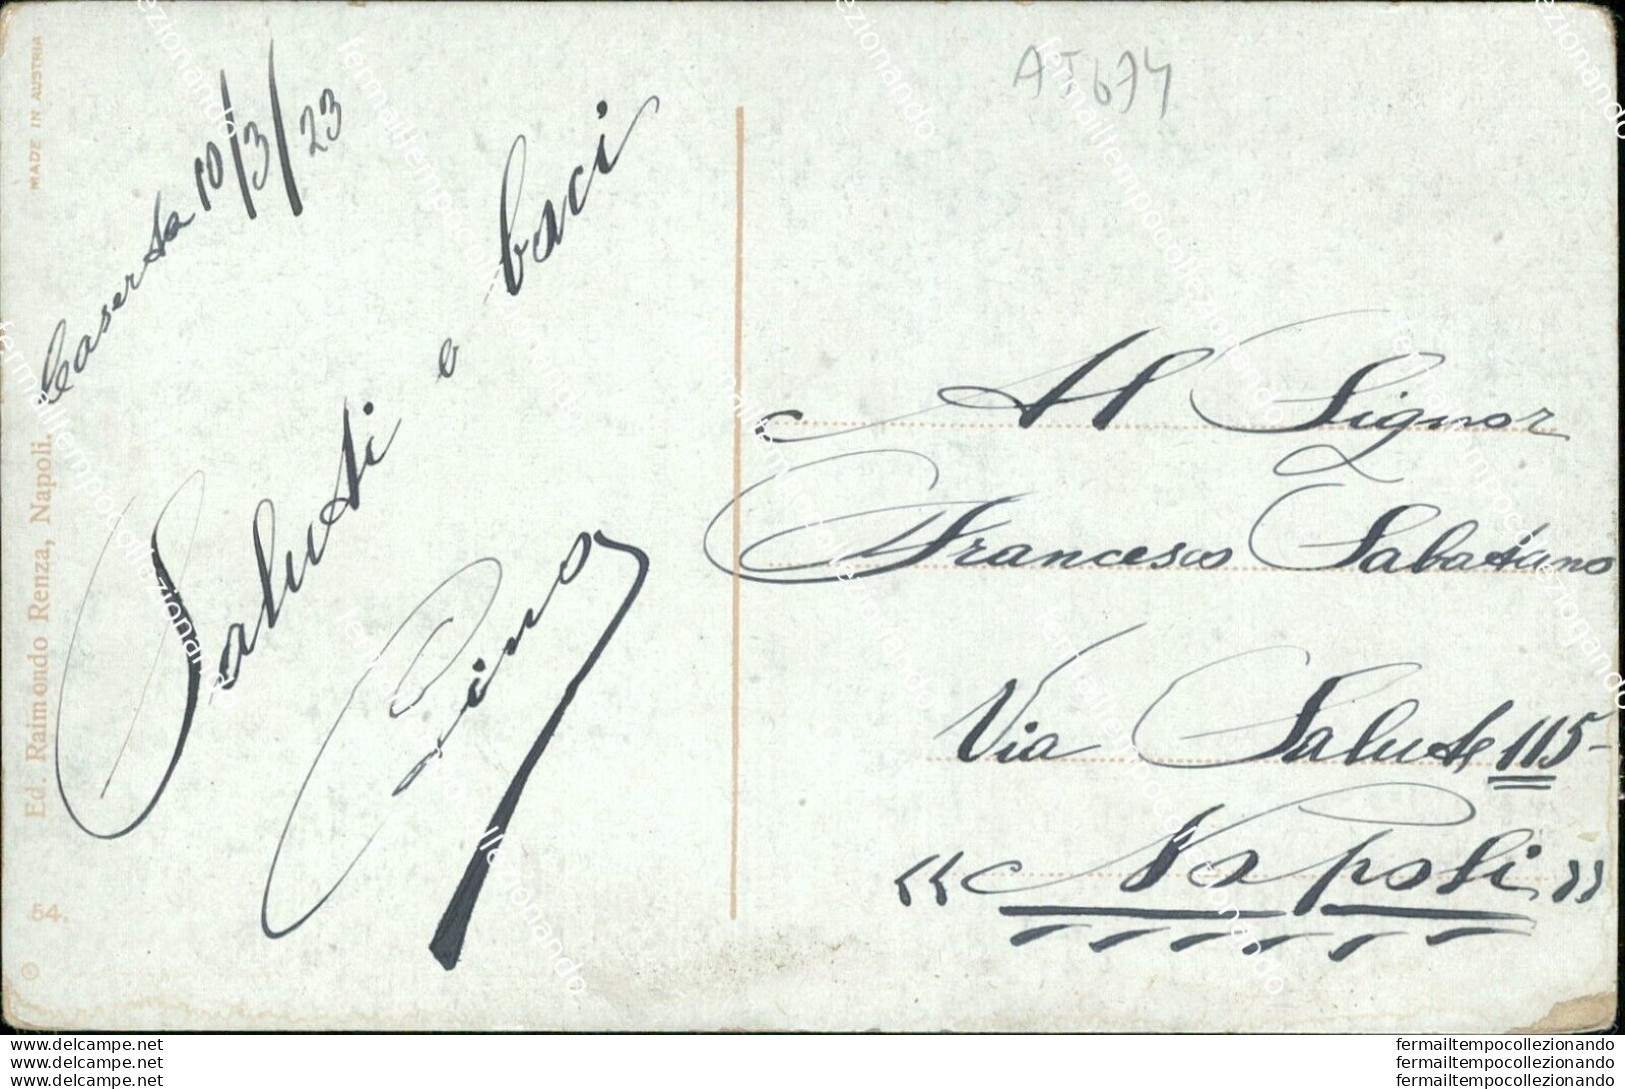 MADE IN AUSTRIA
Ed. Raimondo Renza, Napoli.
54.
Caserta 10/3/23
Saluti e baci
Gino
AJ674
Al Signor
Francesco Sabatino
Via Salute 115-
«Napoli»
www.delcampe.net
www.delcampe.net
www.delcampe.net
fermailtempocollezionando
fermailtempocollezionando
fermailtempocollezionando